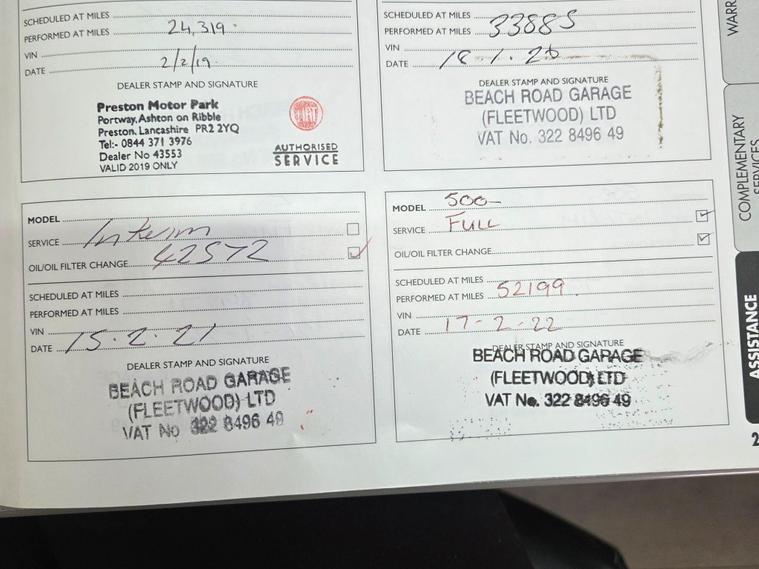 SCHEDULED AT MILES
PERFORMED AT MILES 24,319.
VIN
DATE 2/2/19.
DEALER STAMP AND SIGNATURE
Preston Motor Park
Portway, Ashton on Ribble
Preston, Lancashire PR2 2YQ
Tel:- 0844 371 3976
Dealer No 43553
VALID 2019 ONLY
FIAT
AUTHORISED
SERVICE
SCHEDULED AT MILES
PERFORMED AT MILES 33885
VIN
DATE 18.1.20
DEALER STAMP AND SIGNATURE
BEACH ROAD GARAGE
(FLEETWOOD) LTD
VAT No. 322 8496 49
MODEL
SERVICE Interim
OIL/OIL FILTER CHANGE 42572
SCHEDULED AT MILES
PERFORMED AT MILES
VIN
DATE 15.2.21
DEALER STAMP AND SIGNATURE
BEACH ROAD GARAGE
(FLEETWOOD) LTD
VAT No 322 8496 49
MODEL 500
SERVICE FULL
OIL/OIL FILTER CHANGE
SCHEDULED AT MILES
PERFORMED AT MILES 52199.
VIN
DATE 17-2-22
DEALER STAMP AND SIGNATURE
BEACH ROAD GARAGE
(FLEETWOOD) LTD
VAT No. 322 8496 49
COMPLEMENTARY
SERVICES
ASSISTANCE